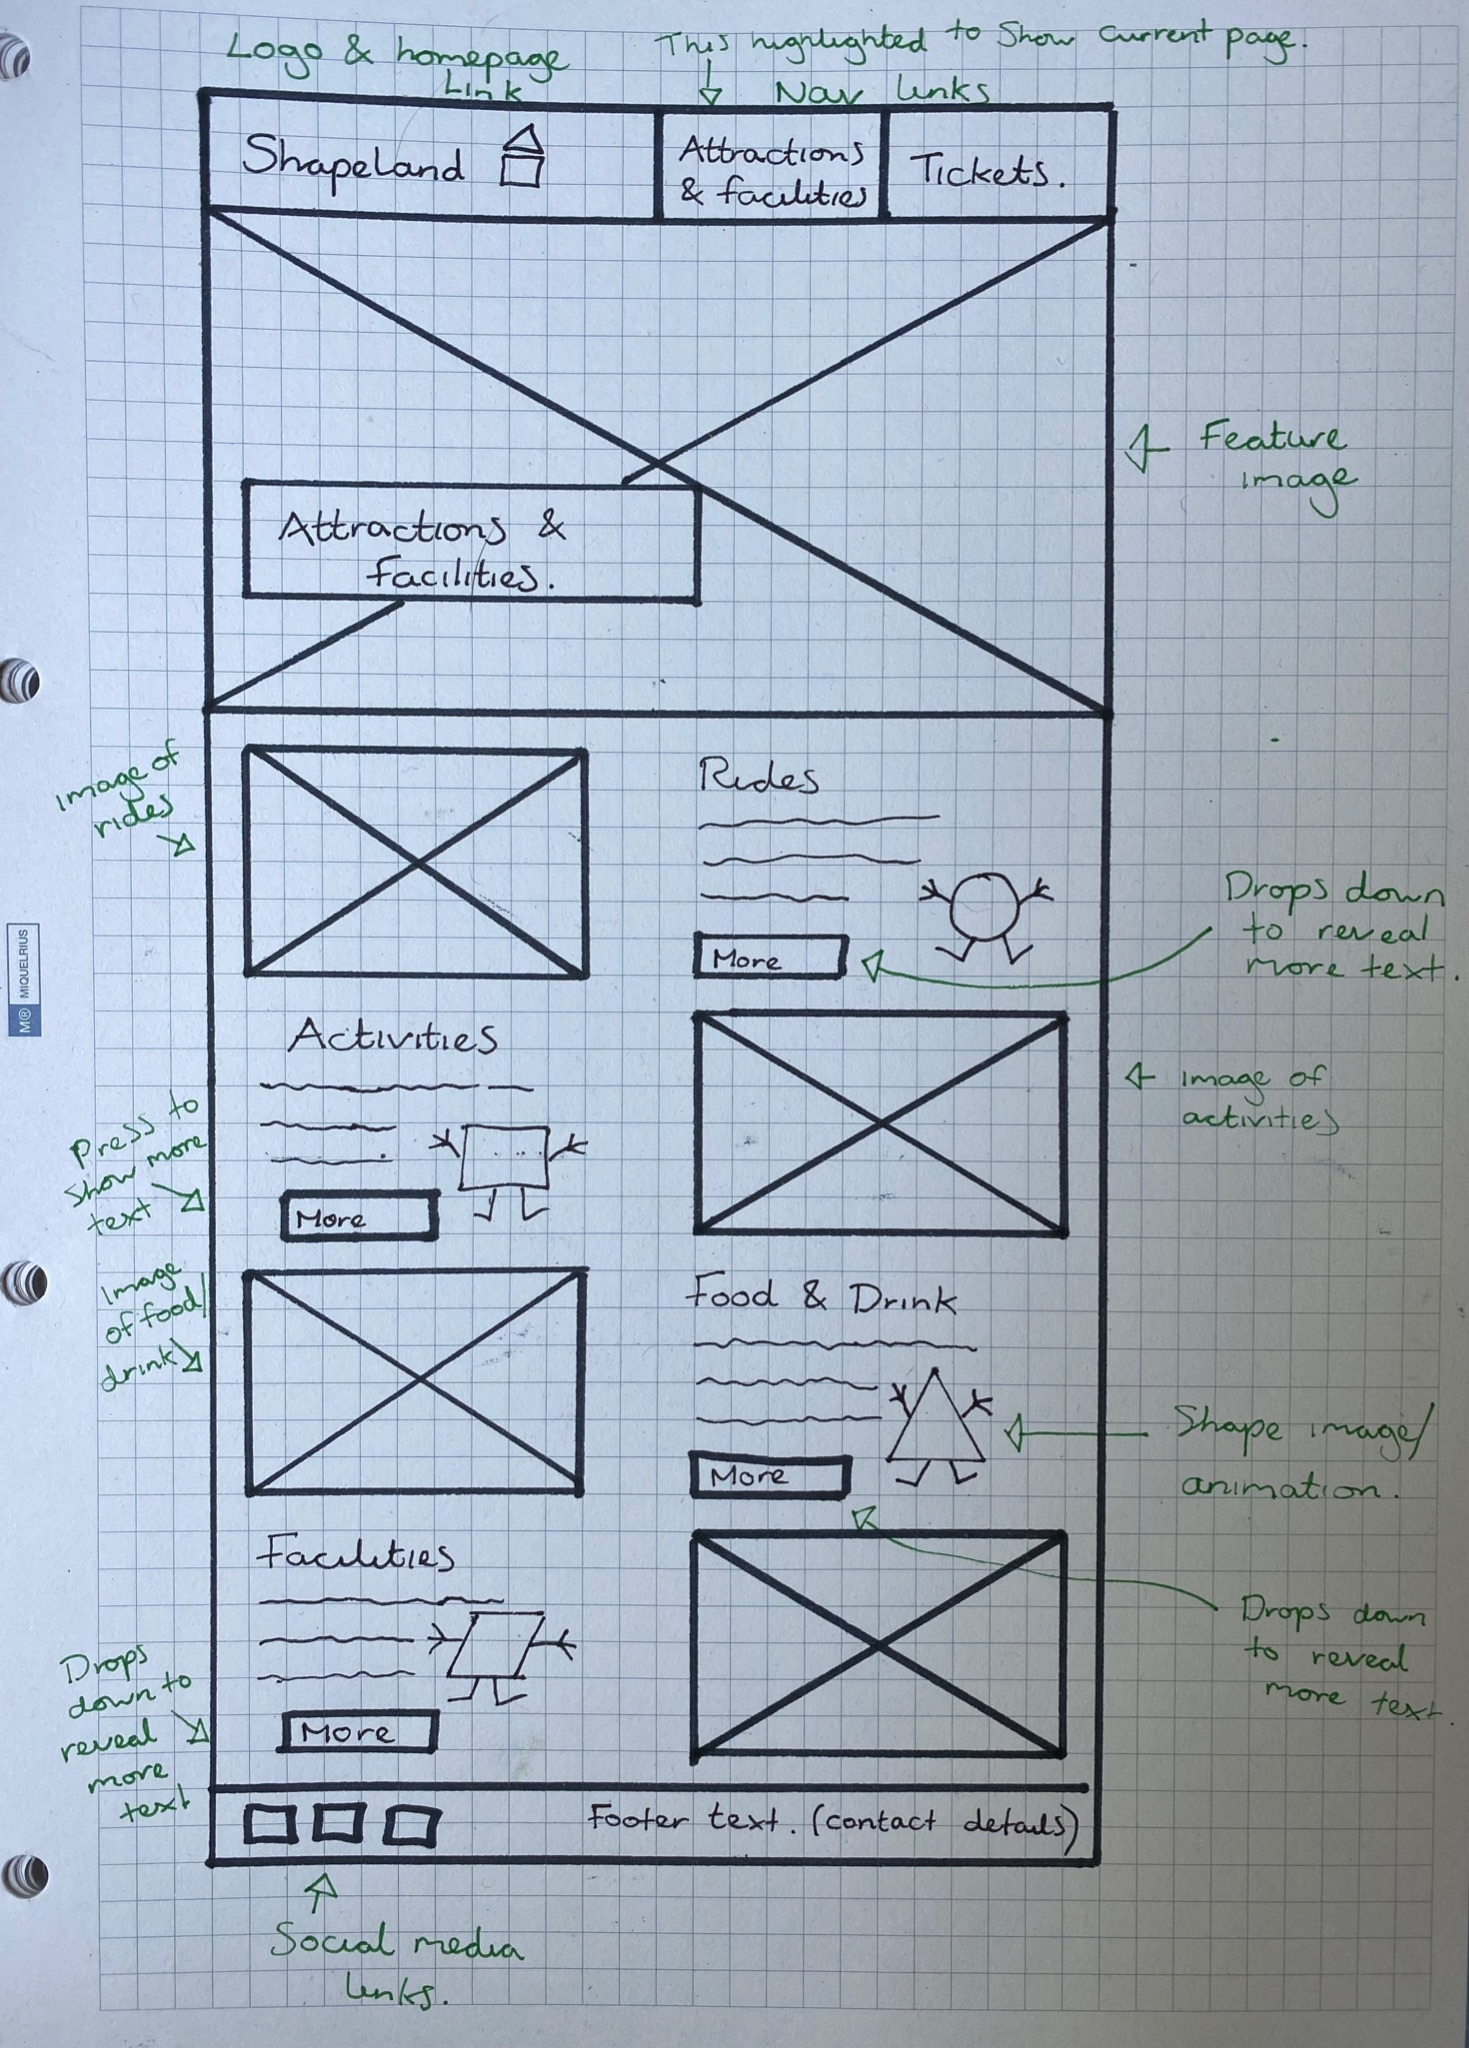 Logo & homepage
Link
This highlighted to Show current page.
Nav links
Shapeland
Attractions
& facilities
Tickets.
Feature
image
Attractions &
facilities.
Image of
rides
Rides
More
Drops down
to reveal
more text.
Activities
Press to
show more
text
More
Image of
activities
Image
of food/
drink
Food & Drink
More
Shape image/
animation.
Drops down
to reveal
more text.
Facilities
Drops
down to
reveal
more
text
More
Footer text. (contact details)
Social media
links.
M® MIQUELRIUS